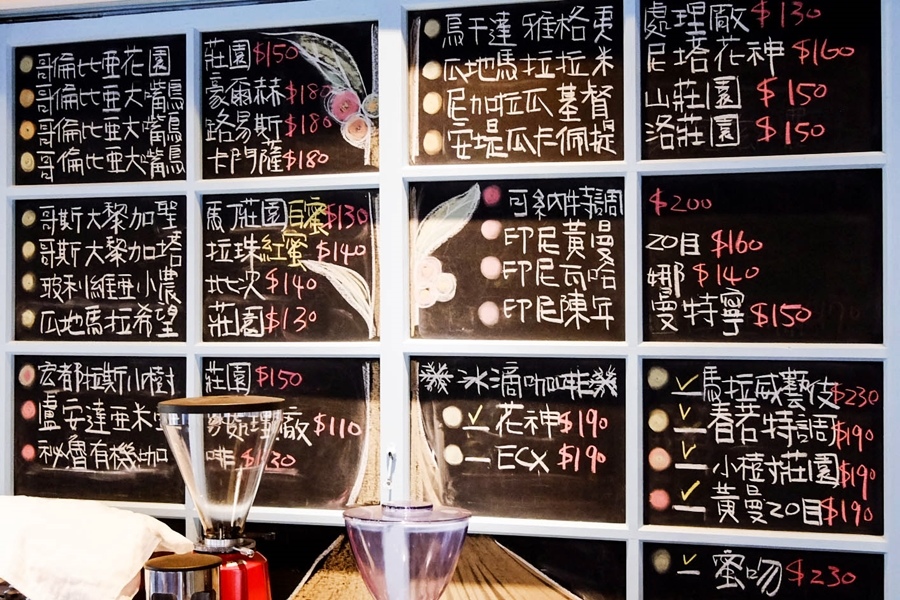 哥倫比亞花園莊園$150
哥倫比亞大嘴鳥豪爾赫$180
哥倫比亞大嘴鳥路易斯$180
哥倫比亞大嘴鳥卡門薩$180
哥斯大黎加聖馬丁莊園白蜜$130
哥斯大黎加塔拉珠紅蜜$140
玻利維亞小農批次$140
瓜地馬拉希望莊園$130
宏都拉斯小樹莊園$150
盧安達亞米 處理廠$110
祕魯有機咖啡$130
烏干達雅格更處理廠$130
瓜地馬拉拉米尼塔花神$160
尼加拉瓜基督山莊園$150
安堤瓜卡佩提洛莊園$150
可納特調$200
印尼黃曼20目$160
印尼瓦哈娜$140
印尼陳年曼特寧$150
冰滴咖啡
花神$190
ECX $190
馬拉威藝伎$230
春若特調$190
小樹莊園$190
黃曼20目$190
蜜吻$230